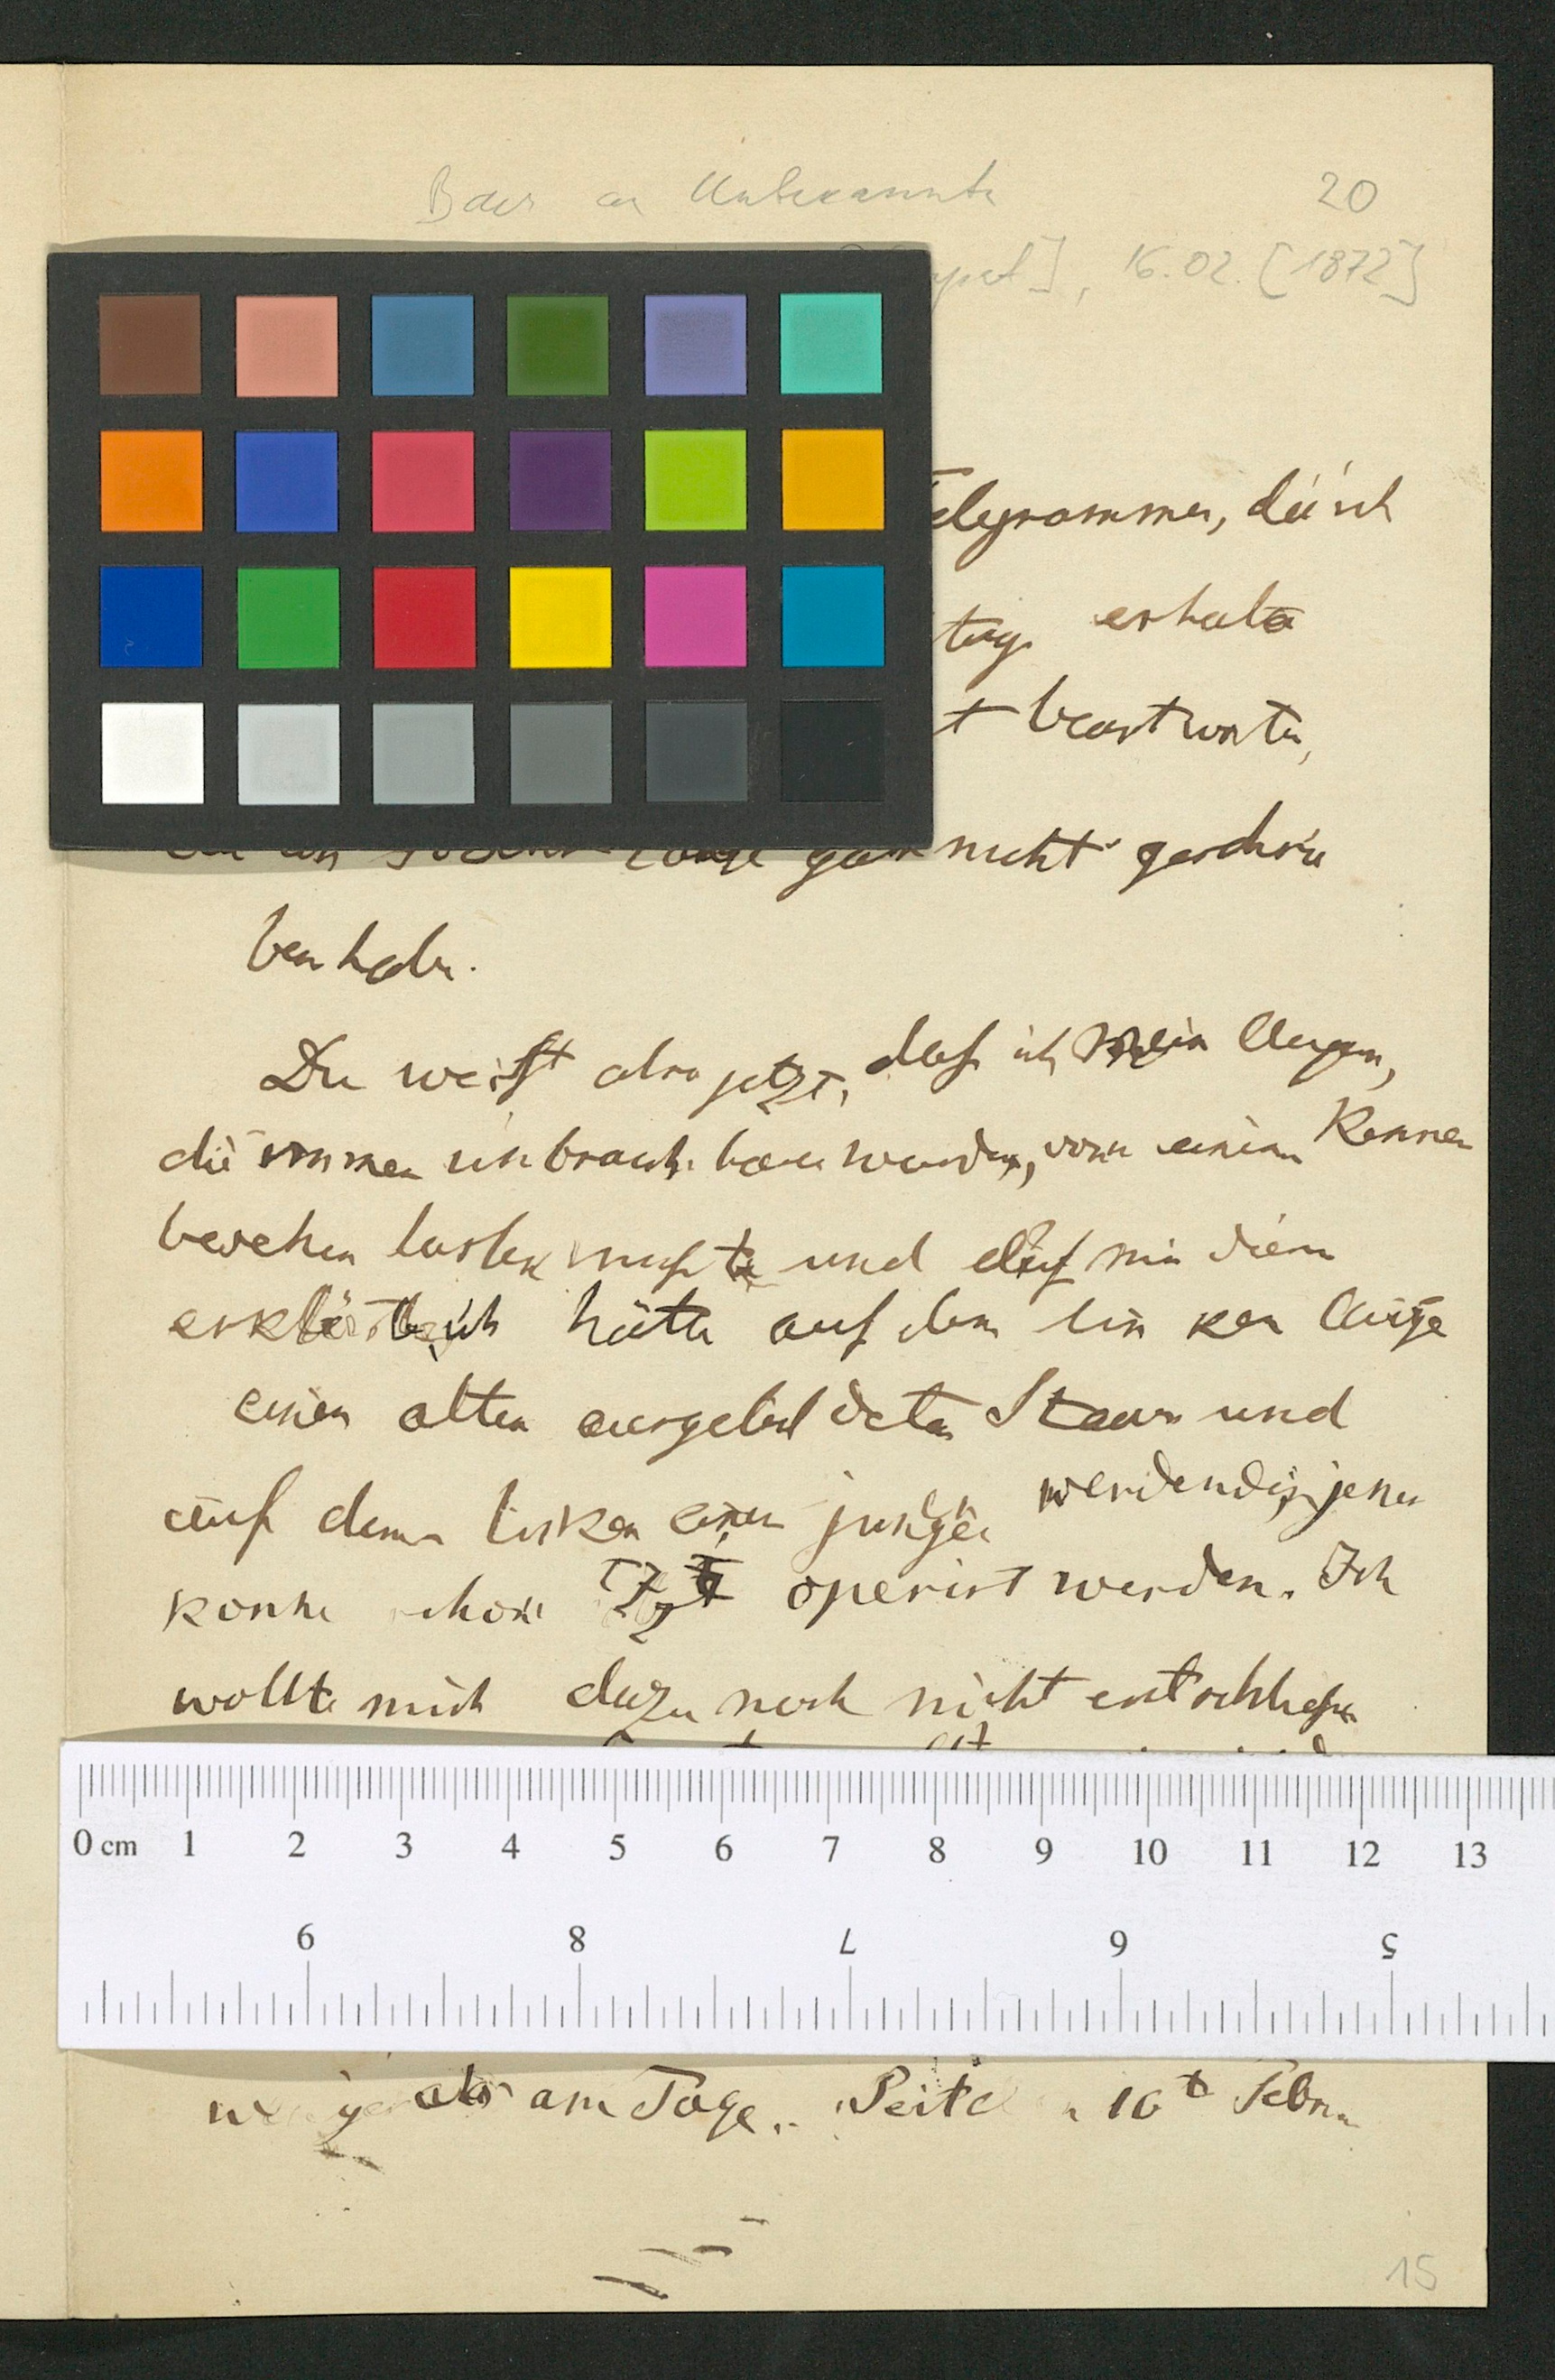 Baer an Unbekannte 20
16.02. [1872]
Telegrammen, die ich
erhalte
beantworten,
gar nicht geschrie
ben habe.
Du weisst also jetzt, dass ich mein Augen,
die immer unbrauchbarer wurden, von einem Kenner
besehen lassen musste und dass mir dieser
erklärte, ich hätte auf dem linken Auge
einen alten ausgebildeten Staar und
auf dem linken einen jungen werdenden, jener
konne schon jetzt operirt werden. Ich
wollte mich dazu noch nicht entschliessen
0 cm 1 2 3 4 5 6 7 8 9 10 11 12 13
9 8 7 6 5
als am Tage. Seit 16t Febru
15